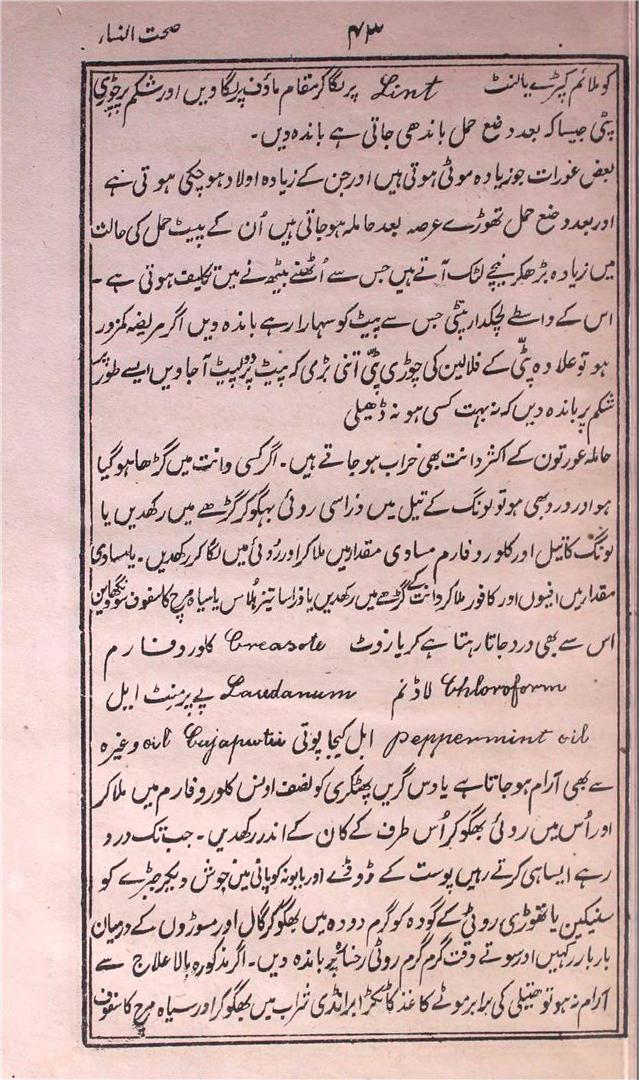 صحت النساء ۴۳
کو ملائم کپڑے یا لنٹ Lint پر لگا کر مقام ماؤف پر لگا ویں اور شکم پر چوڑی
پٹی جیسا کہ بعد وضع حمل باندھی جاتی ہے باندہ دیں۔
بعض عورات جو زیادہ موٹی ہوتی ہیں اور جن کے زیادہ اولاد ہو چکی ہوتی ہے
اور بعد وضع حمل تھوڑے عرصہ بعد حاملہ ہو جاتی ہیں اُن کے پیٹ حمل کی حالت
میں زیادہ بڑھکر نیچے لٹک آتے ہیں جس سے اُٹھنے بیٹھنے میں تکلیف ہوتی ہے۔
اس کے واسطے لچکدار پیٹی جس سے پیٹ کو سہارا رہے باندہ دیں اگر مریضہ کمزور
ہو تو علاوہ پٹی کے فلالین کی چوڑی پٹی اتنی بڑی کہ پیٹ پر دو لپیٹ آجاویں ایسے طور پر
شکم پر باندہ دیں کہ نہ بہت کسی ہو نہ ڈھیلی
حاملہ عورتوں کے اکثر دانت بھی خراب ہو جاتے ہیں۔ اگر کسی دانت میں گڑھا ہو گیا
ہو اور درد بھی ہو تو لونگ کے تیل میں ذرا سی روئی بہگو کر گڑھے میں رکھدیں یا
لونگ کا تیل اور کلوروفارم مساوی مقدار میں ملا کر اور روئی میں لگا کر رکھدیں۔ یا مساوی
مقدار میں افیوں اور کافور ملا کر دانت کے گڑھے میں رکھدیں یا ذرا سا تیز ہلاس یا سیاہ مرچ کا سفوف سونگھاویں
اس سے بھی درد جاتا رہتا ہے کریازوٹ Creasote کلوروفارم
Chloroform لاڈنم Laudanum پے پرمنٹ ایل
peppermint oil ایل کیجا پوتی oil Cujaputii وغیرہ
سے بھی آرام ہو جاتا ہے یا دس گرین پھٹکری کو نصف اونس کلوروفارم میں ملا کر
اور اُس میں روئی بھگو کر اُس طرف کے کان کے اندر رکھدیں۔ جب تک درد
رہے ایسا ہی کرتے رہیں پوست کے ڈوڈے اور بابونہ کو پانی میں جوش دیکر جبڑے کو
سینکیں یا تھوڑی روٹی کے گودہ کو گرم دودہ میں بھگو کر گال اور مسوڑوں کے درمیان
بار بار رکہیں اور سوتے وقت گرم گرم روٹی رخسارہ پر باندہ دیں۔ اگر مذکورہ بالا علاج سے
آرام نہ ہو تو ہتیلی کی برابر موٹے کاغذ کا ٹکڑا برانڈی شراب میں بھگو کر اور سیاہ مرچ کا سفوف